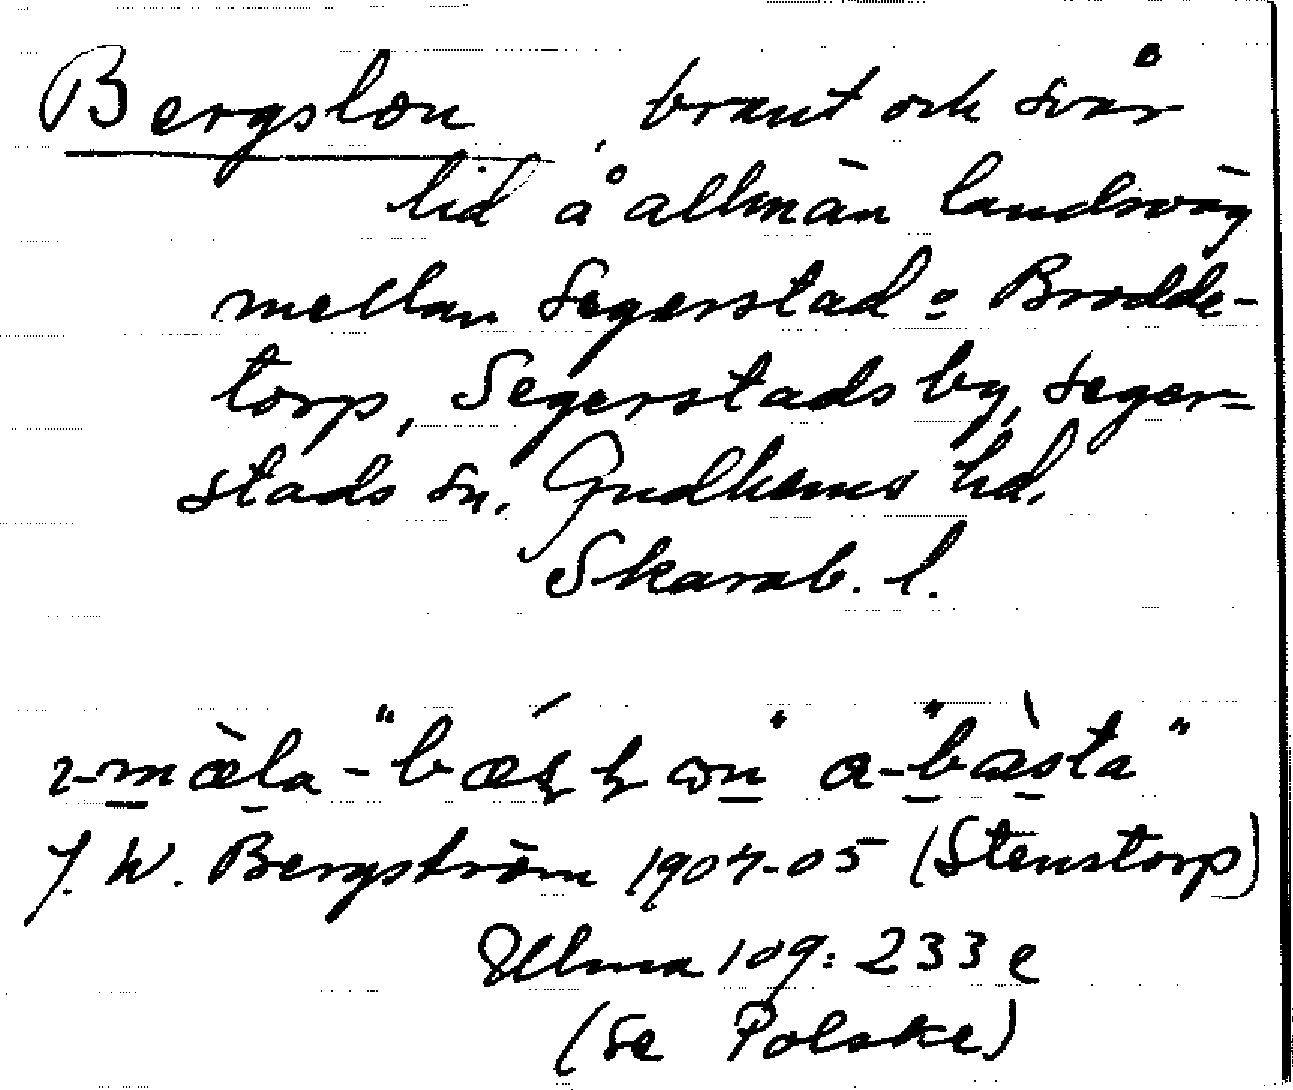 Bergslon, brant och svår
lid å allmän landsväg
mellan Segerstad o Brodde-
torp, Segerstads by, Seger=
stads sn. Gudhems hd.
Skarab. l.
"bästa"
J. W. Bergström 1904-05 (Stenstorp)
Ulma 109: 233 e
(Se Polske)